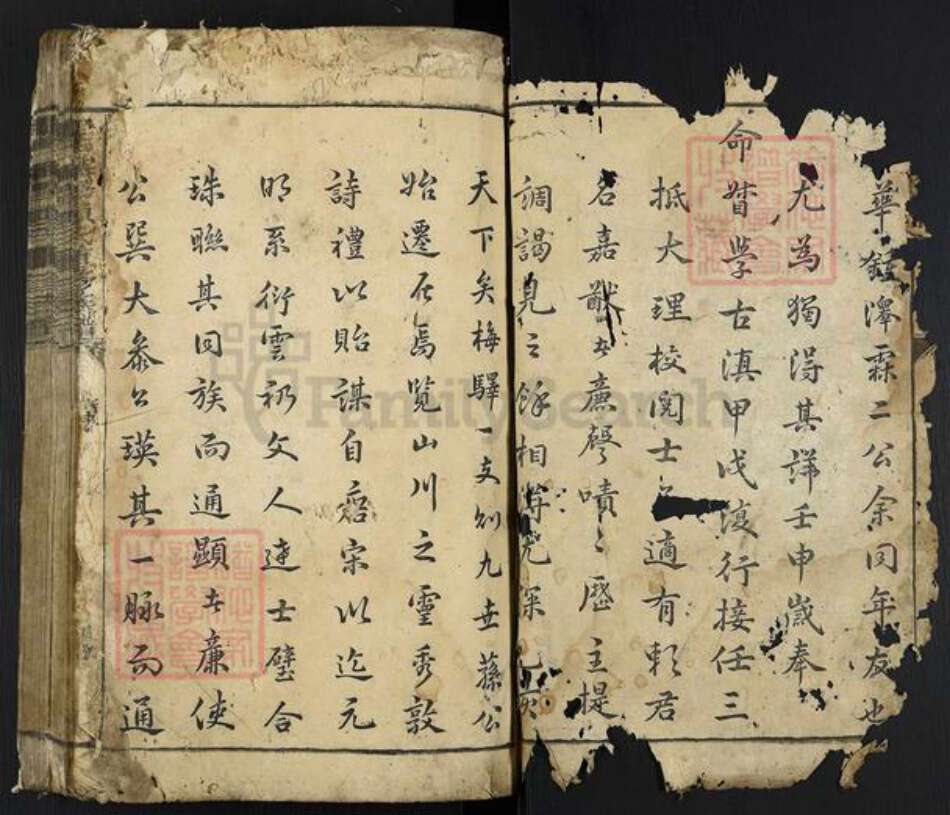 華鍾澤霖二公余同年友也
尤為獨得其詳壬申歲奉
命督學古滇甲戌復行接任三
抵大理校閱士適有
君
名嘉猷者廉聲嘖〻歷主提
調謁見之餘相
天下矣梅驛一支則九世蓀公
始遷居焉覽山川之靈秀敦
詩禮以貽謀自唐宋以迄元
明系衍雲礽文人達士璧合
珠聯其同族而通顯者廉使
公巽大參公瑛其一脉而通
FamilySearch